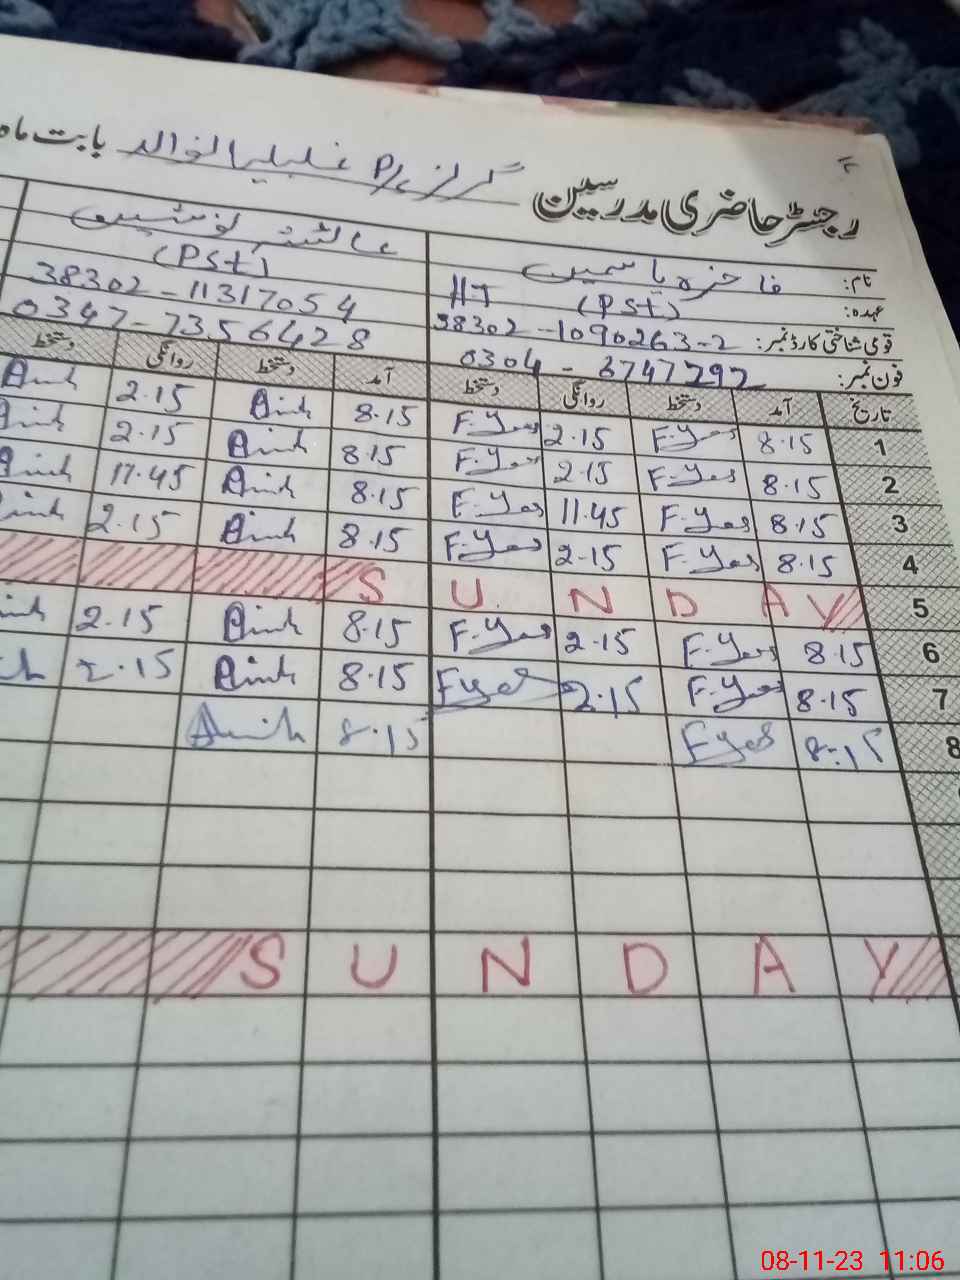 رجسٹر حاضری مدرسین گرلز P/S بابت ماہ
نام: فاخرہ یاسمین عائشہ نوشین
عہدہ: (PST) HT (PST)
قومی شناختی کارڈ نمبر: 38302-1090263-2 38302-11317054
فون نمبر: 0304-6747292 0347-7356428
تاریخ آمد دستخط روانگی دستخط آمد دستخط روانگی دستخط
1 8.15 F.Yas 2.15 F.Yas 8.15 2.15
2 8.15 F.Yas 2.15 F.Yas 8.15 2.15
3 8.15 F.Yas 11.45 F.Yas 8.15 11.45
4 8.15 F.Yas 2.15 F.Yas 8.15 2.15
5 SUNDAY
6 8.15 F.Yas 2.15 F.Yas 8.15 2.15
7 8.15 F.Yas 2.15 Fyas 8.15 2.15
8 8.15 Fyas 8.15
SUNDAY
08-11-23 11:06